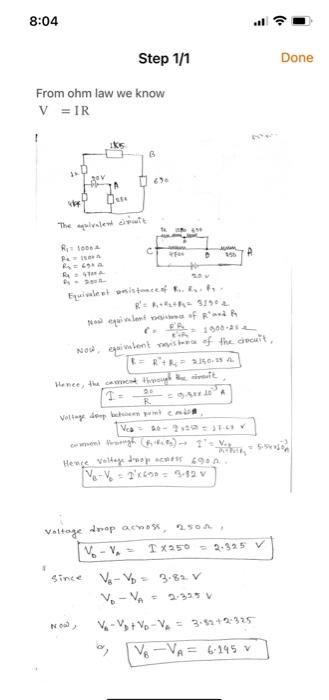 8:04
Step 1/1
Done
From ohm law we know
V = IR
B
690
20V
A
The equivalent circuit
R₁ = 1000 Ω
R₂ = 1500 Ω
R₃ = 690 Ω
R₄ = 4700 Ω
C
4700
B
250
A
20V
Equivalent resistance of R₁, R₂, R₃,
R' = R₁+R₂+R₃ = 3190 Ω
Now equivalent resistance of R' and R₄
Now, equivalent resistance of the circuit,
R = R''+R₅ = 2150.25 Ω
Hence, the current through the circuit,
I = 20/R = 9.30x10⁻³ A
Voltage drop between point C and D,
current through (R₁R₂R₃) →
Hence voltage drop across 690Ω,
V_B-V_D = I'x690 = 3.82 V
Voltage drop across, 250Ω,
V_D - V_A = I X 250 = 2.325 V
Since V_B - V_D = 3.82 V
V_D - V_A = 2.325 V
Now, V_B - V_D + V_D - V_A = 3.82+2.325
V_B - V_A = 6.145 V